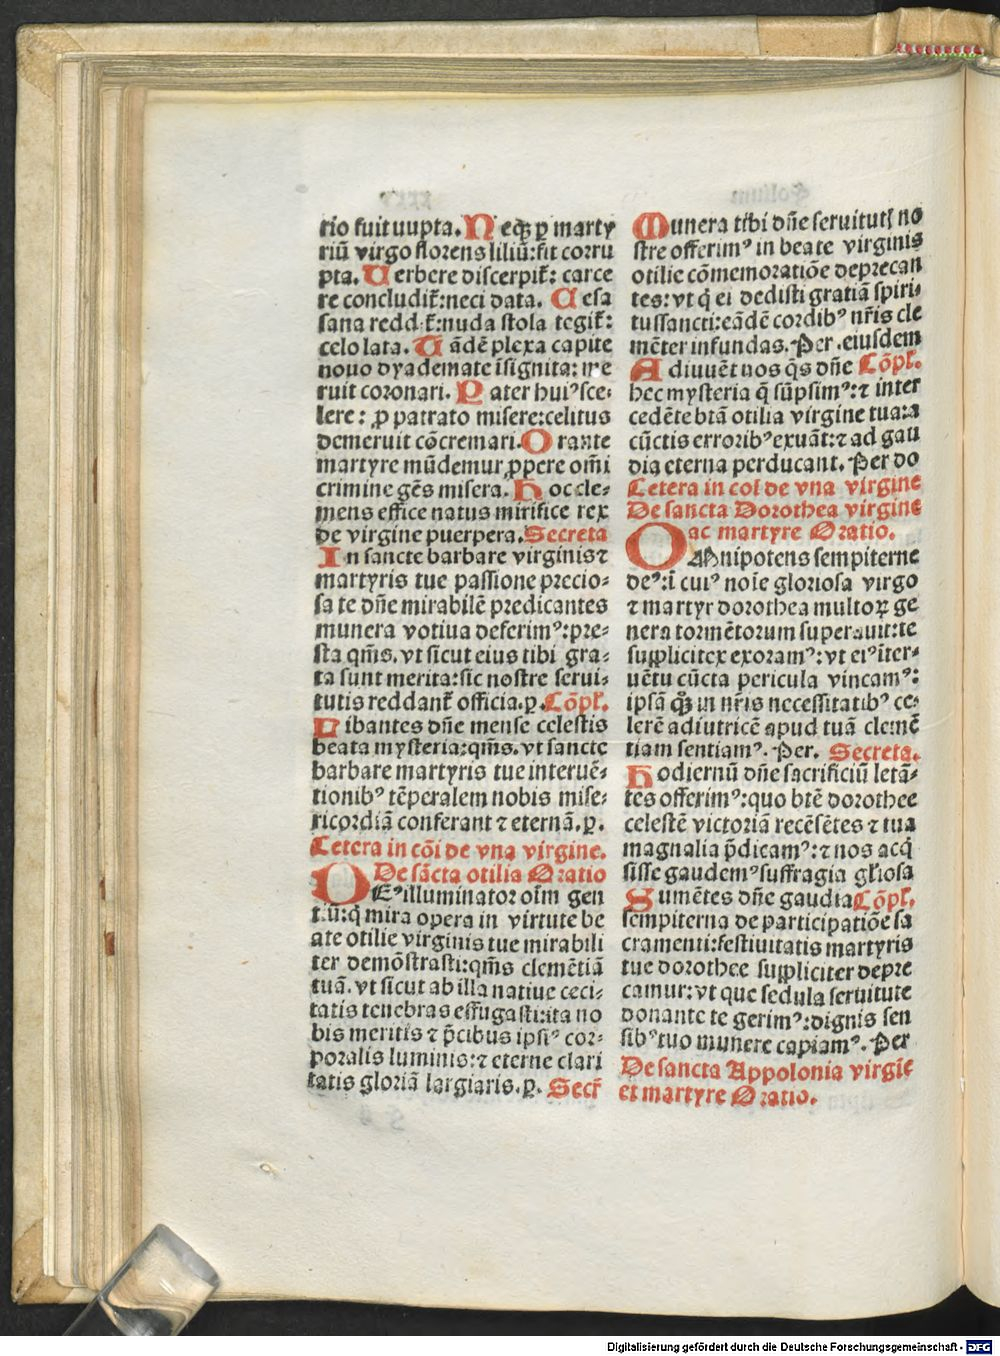 rio fuit uupta. Neqꝫ ꝑ marty
riū virgo florens liliū: fit corru
pta. Verbere discerpit̄: carce
re concludit̄: neci data. Cesa
sana reddit̄: nuda stola tegit̄:
celo lata. Uādē plexa capite
nouo dyademate īsignita: me
ruit coronari. Pater huiꝰ sce⸗
lere: ꝓ patrato misere: celitus
demeruit cōcremari. Orante
martyre mūdemur ꝓpere om̄i
crimine gēs misera. Hoc cle⸗
mens effice natus mirifice rex
de virgine puerpera. Secreta
In sancte barbare virginis ⁊
martyris tue passione precio⸗
sa te dn̄e mirabilē predicantes
munera votiua deferimꝰ: pre⸗
sta qm̄s. vt sicut eius tibi gra⸗
ta sunt merita: sic nostre serui⸗
tutis reddant̄ officia. ꝑ. Cōpl̄.
Libantes dn̄e mense celestis
beata mysteria: qm̄s. vt sancte
barbare martyris tue interuē⸗
tionibꝰ tēperalem nobis mise⸗
ricordiā conferant ⁊ eternā. ꝑ.
Cetera in cōi de vna virgine.
De sācta otilia Oratio
DEꝰ illuminator oīm gen
tiū: qͥ mira opera in virtute be
ate otilie virginis tue mirabili
ter demōstrasti: qm̄s clemētiā
tuā. vt sicut ab illa natiue ceci⸗
tatis tenebras effugasti: ita no
bis meritis ⁊ p̄cibus ipsiꝰ cor⸗
poralis luminis: ⁊ eterne clari
tatis gloriā largiaris. ꝑ. Secr̄
Munera tibi dn̄e seruitutis no
stre offerimꝰ in beate virginis
otilie cōmemoratiōe deprecan
tes: vt qͥ ei dedisti gratiā spiri⸗
tussancti: eādē cordibꝰ nr̄is cle
mēter infundas. Per .eiusdem
Adiuuēt nos q̄s dn̄e Cōpl̄.
hec mysteria q̄ sūpsimꝰ: ⁊ inter
cedēte btā otilia virgine tua: a
cūctis erroribꝰ exuāt: ⁊ ad gau
dia eterna perducant. Per do
Cetera in col de vna virgine
De sancta Dorothea virgine
ac martyre Oratio.
OMnipotens sempiterne
deꝰ: ī cuiꝰ noīe gloriosa virgo
⁊ martyr dorothea multoꝝ ge
nera tormētorum superauit: te
supplicitex exoramꝰ: vt eiꝰ īter⸗
uētu cūcta pericula vincamꝰ:
ipsā qꝫ in nr̄is necessitatibꝰ ce⸗
lerē adiutricē apud tuā clemē
tiam sentiamꝰ. Per. Secreta.
Hodiernū dn̄e sacrificiū letā⸗
tes offerimꝰ: quo btē dorothee
celestē victoriā recēsētes ⁊ tua
magnalia p̄dicamꝰ: ⁊ nos acq̄
sisse gaudemꝰ suffragia gl̄iosa
Sumētes dn̄e gaudia Cōpl̄.
sempiterna de participatiōe sa
cramenti: festiuitatis martyris
tue dorothee suppliciter depre
camur: vt que sedula seruitute
donante te gerimꝰ: dignis sen
sibꝰ tuo munere capiamꝰ. Per
De sancta Appolonia virgīe
et martyre Oratio.
Digitalisierung gefördert durch die Deutsche Forschungsgemeinschaft - DFG